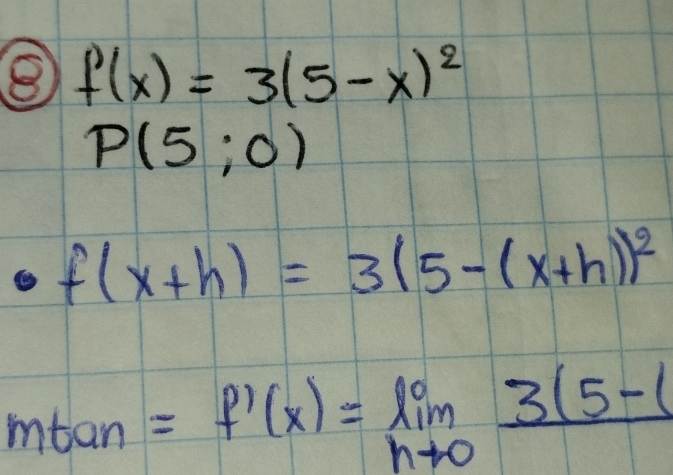 ⑧ f(x) = 3(5-x)²
P(5;0)
• f(x+h) = 3(5-(x+h))²
mtan = f'(x) = lim h→0 3(5-(